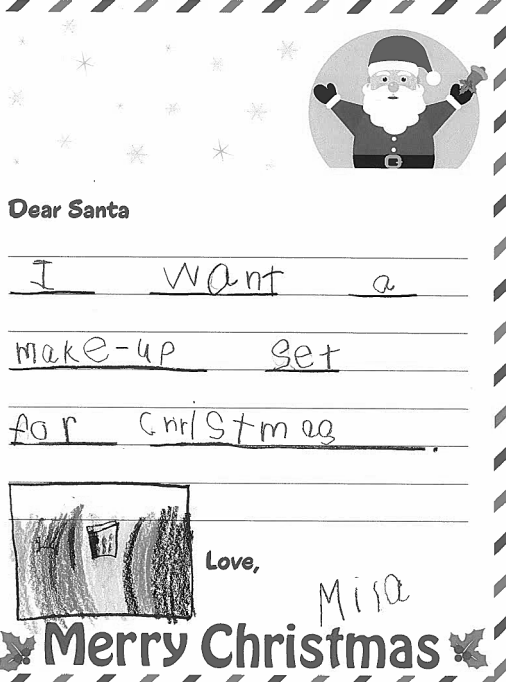 Dear Santa
I want a
make-up set
for Christmas.
Love,
Misa
Merry Christmas